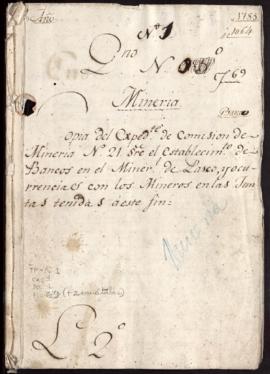 Año
Nº 1
1785
1064
Qno Nº
C 769
Mineria
Banco
Copia del Expedte de Comision de
Mineria Nº 21 Sre el Establecimto de
Bancos en el Minerl de Lauco, y ocu
rrencias con los Mineros en las Jun
tas tenidas a este fin:
Lº 2º